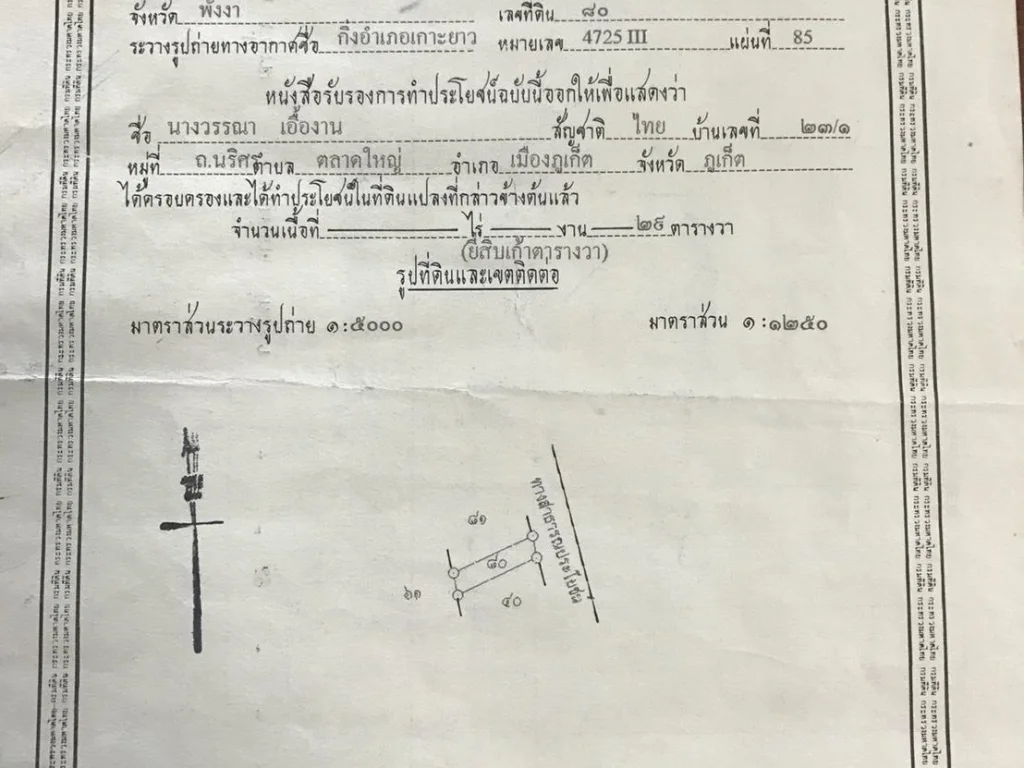 จังหวัด พังงา เลขที่ดิน ๘๐
ระวางรูปถ่ายทางอากาศชื่อ กิ่งอำเภอเกาะยาว หมายเลข 4725 III แผ่นที่ 85
หนังสือรับรองการทำประโยชน์ฉบับนี้ออกให้เพื่อแสดงว่า
ชื่อ นางวรรณา เอื้องาน สัญชาติ ไทย บ้านเลขที่ ๒๓/๑
หมู่ที่ ถ.นริศร ตำบล ตลาดใหญ่ อำเภอ เมืองภูเก็ต จังหวัด ภูเก็ต
ได้ครอบครองและได้ทำประโยชน์ในที่ดินแปลงที่กล่าวข้างต้นแล้ว
จำนวนเนื้อที่ ไร่ งาน ๒๙ ตารางวา
(ยี่สิบเก้าตารางวา)
รูปที่ดินและเขตติดต่อ
มาตราส่วนระวางรูปถ่าย ๑:๕๐๐๐ มาตราส่วน ๑:๑๒๕๐
ทางสาธารณประโยชน์
๘๑
๘๐
๖๑
กรมที่ดิน กระทรวงมหาดไทย